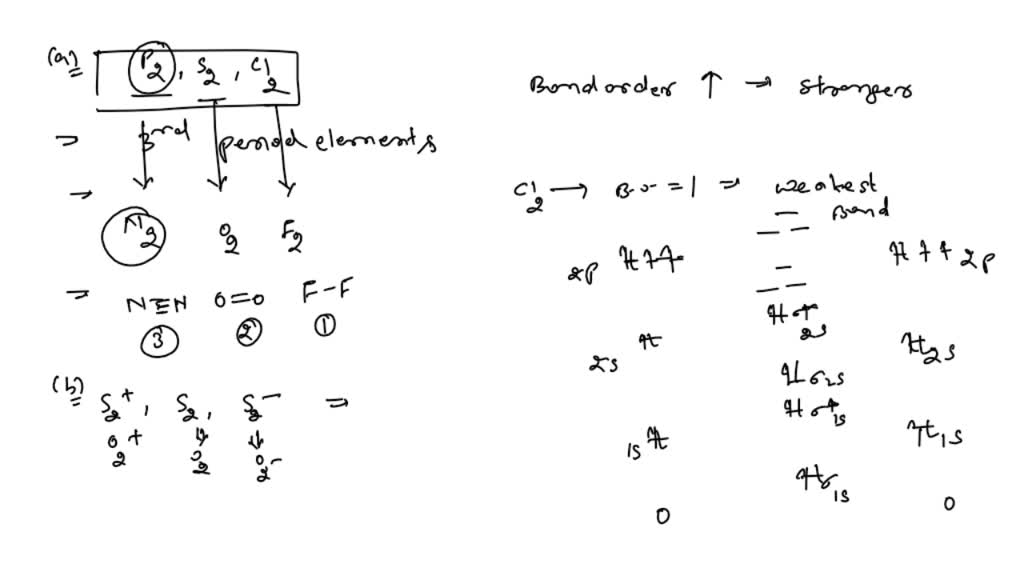 (a) P2, S2, Cl2
⇒ 3rd period elements
→ N2 O2 F2
⇒ N≡N O=O F-F
3 2 1
(b) S2+, S2, S2- ⇒
O2+ O2 O2-
Bond order ↑ → stronger
Cl2 → B.O = 1 ⇒ weakest
Bond
2p 2p
σ*2s
2s 2s
σ2s
σ*1s
1s 1s
σ1s
O O